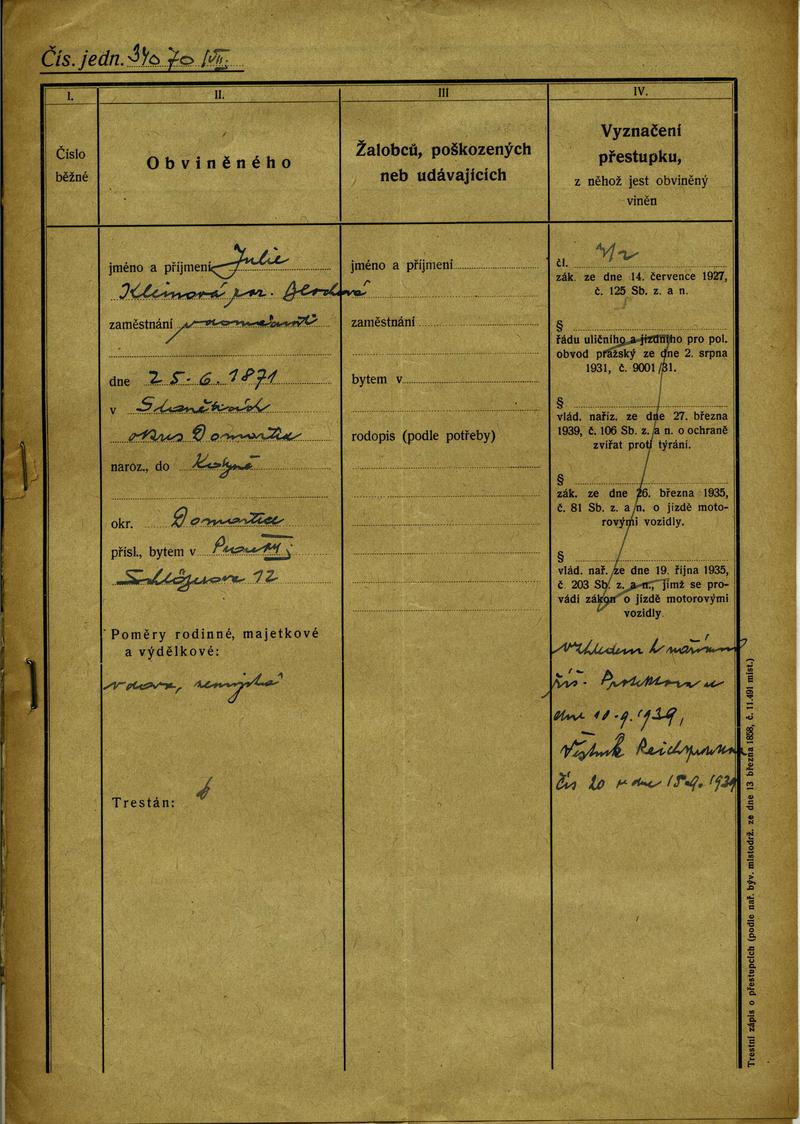 Čís. jedn.
I.
II.
III
IV.
Číslo
běžné
Obviněného
Žalobců, poškozených
neb udávajících
Vyznačení
přestupku,
z něhož jest obviněný
viněn
jméno a příjmení Julie
Kleinová
zaměstnání
dne 25.6.1871
v
Domažlice
naroz., do Kdyně
okr. Domažlice
přísl., bytem v Praze
12
Poměry rodinné, majetkové
a výdělkové:
vdova,
Trestán:
jméno a příjmení
zaměstnání
bytem v
rodopis (podle potřeby)
čl.
zák. ze dne 14. července 1927,
č. 125 Sb. z. a n.
§
řádu uličního a jízdního pro pol.
obvod pražský ze dne 2. srpna
1931, č. 9001/31.
§
vlád. naříz. ze dne 27. března
1939, č. 106 Sb. z. a n. o ochraně
zvířat proti týrání.
§
zák. ze dne 26. března 1935,
č. 81 Sb. z. a n. o jízdě moto-
rovými vozidly.
§
vlád. nař. ze dne 19. října 1935,
č. 203 Sb. z. a n., jímž se pro-
vádí zákon o jízdě motorovými
vozidly.
vzhledem k nařízení
říš. Protektora ze
dne 1939,
Věstník
čís 20 ze dne 15.9.1939
Trestní zápis o přestupcích (podle nař. býv. místodrž. ze dne 13 března 1898, č. 11.491 míst.)